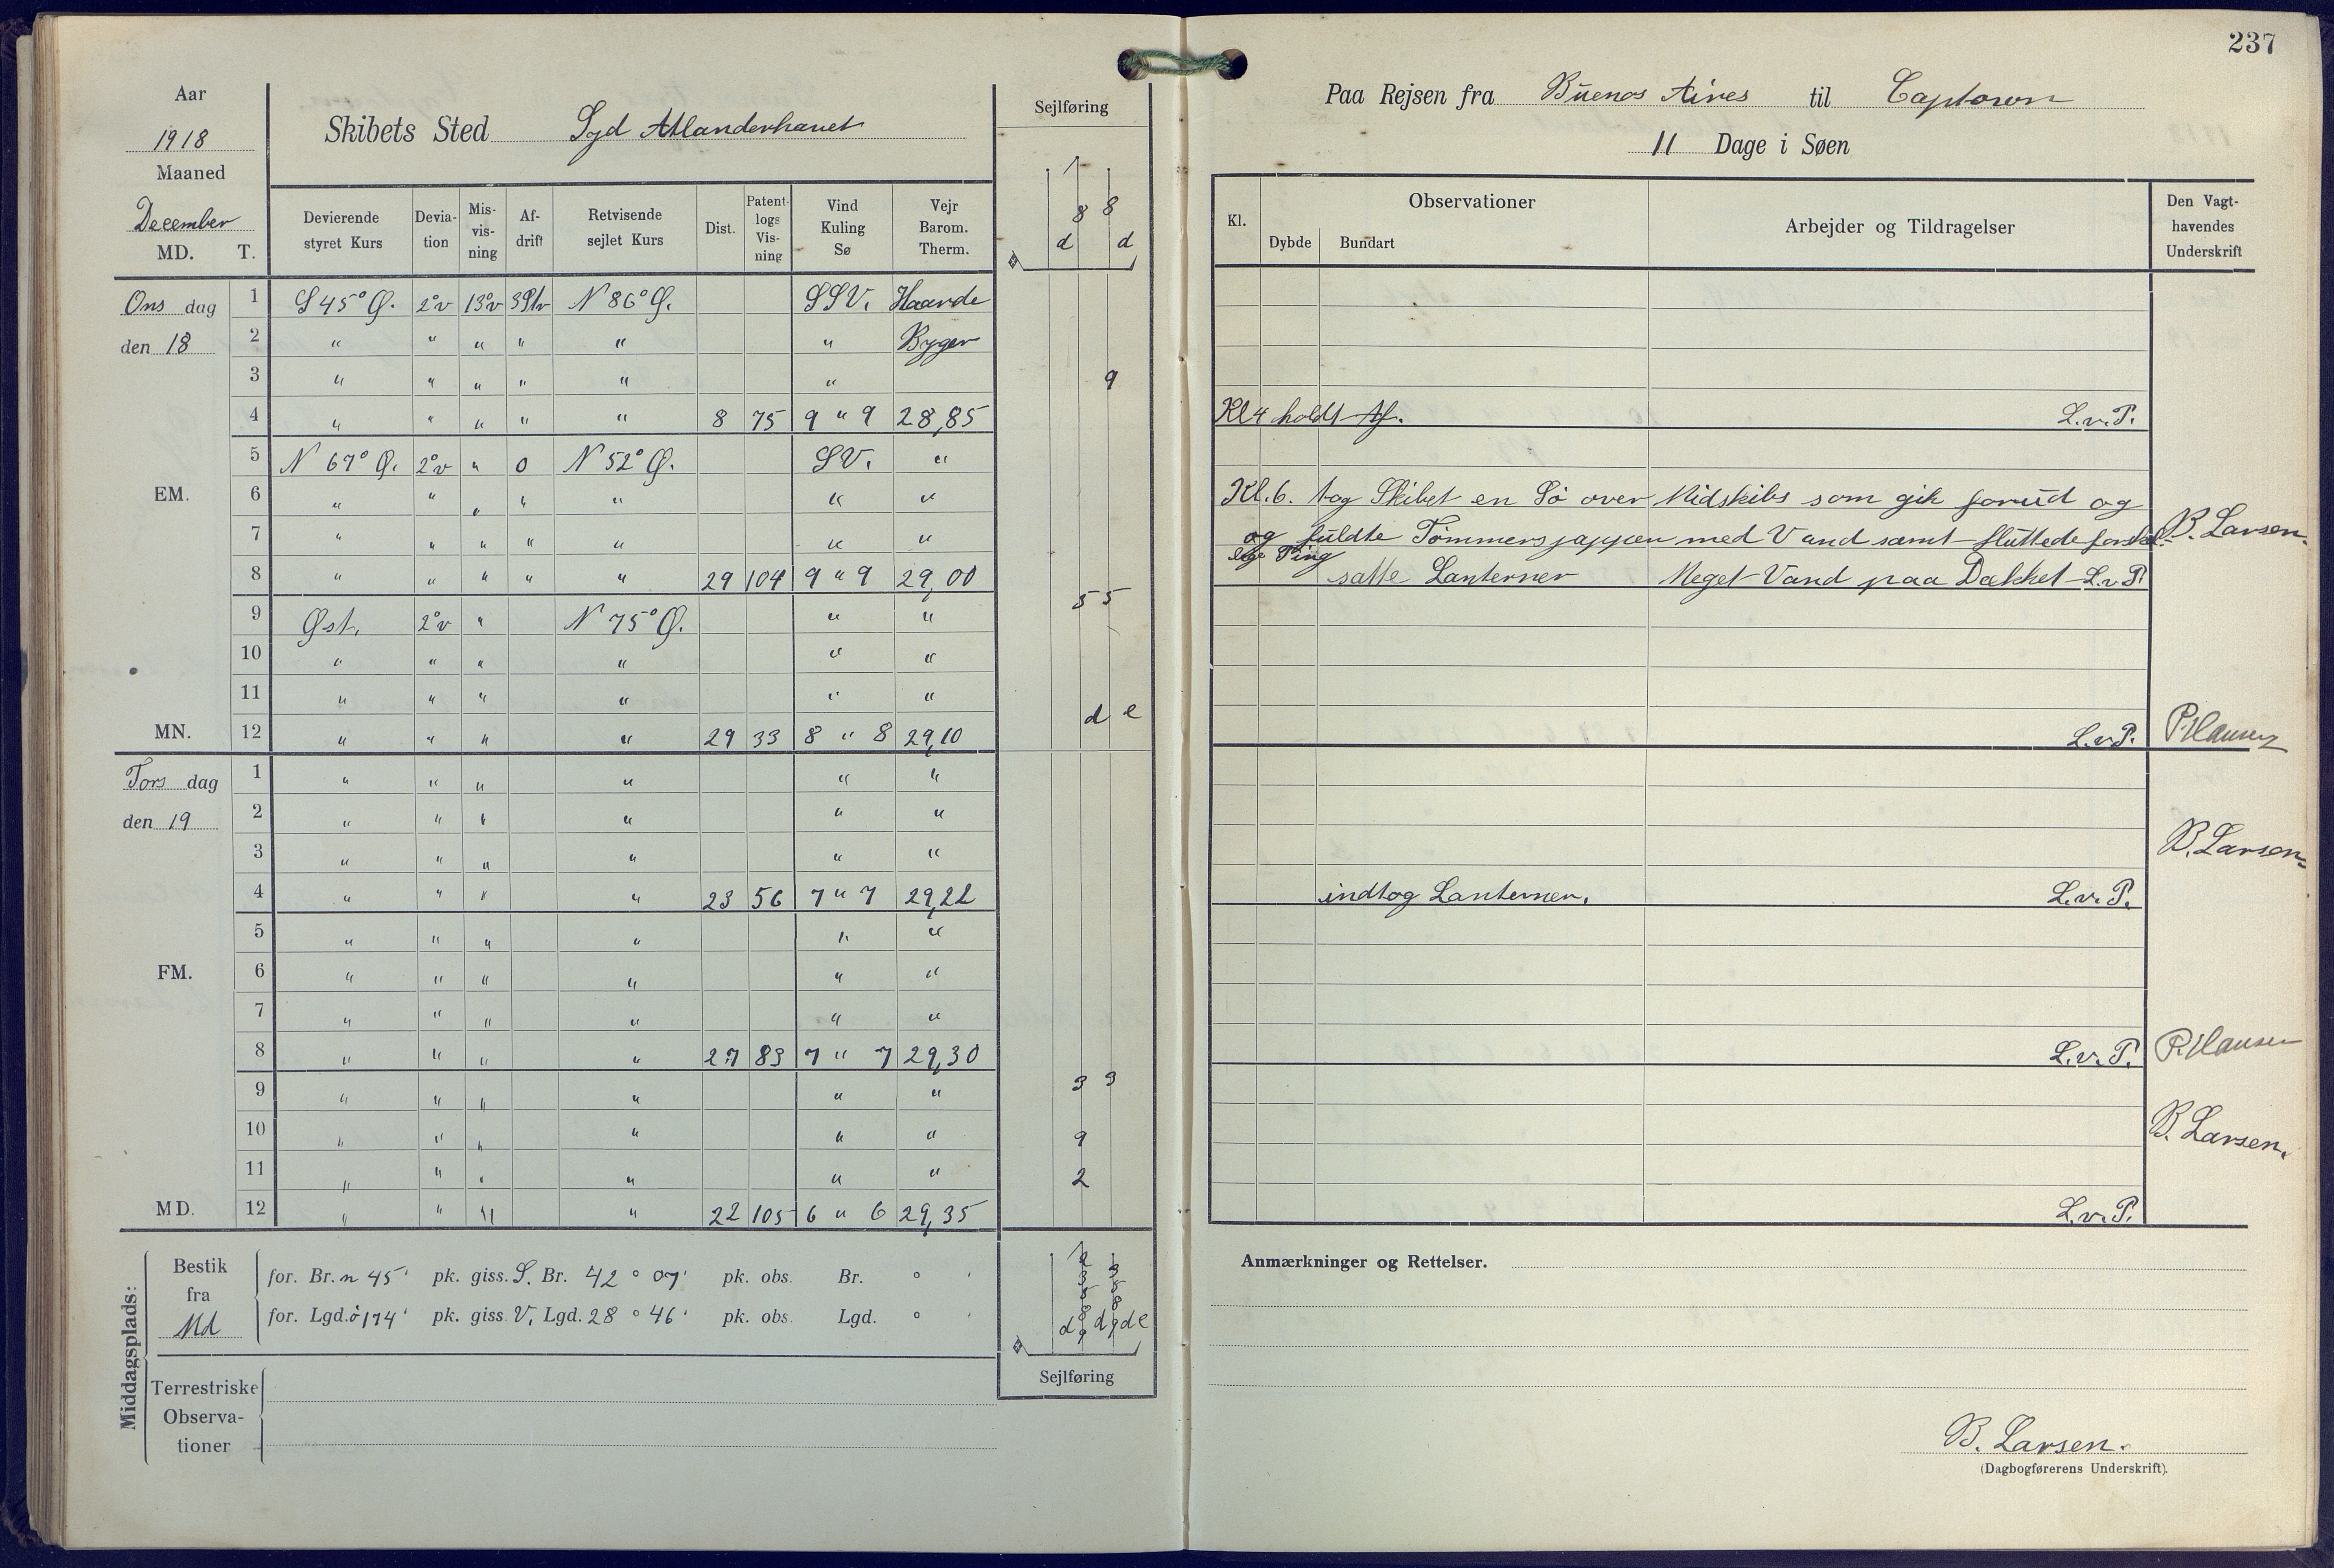 237
Aar
1918
Maaned
December
MD. T.
Skibets Sted Syd Atlanderhavet
Sejlføring
1
8 8
d d
Paa Rejsen fra Buenos Aires til Captown
11 Dage i Søen
Devierende styret Kurs Devia-tion Mis-vis-ning Af-drift Retvisende sejlet Kurs Dist. Patent-logs Vis-ning Vind Kuling Sø Vejr Barom. Therm.
Kl. Observationer Dybde Bundart Arbejder og Tildragelser Den Vagt-havendes Underskrift
Ons dag 1 S 45° Ø. 2°v 13°v 3Str N 86° Ø. SSV. Haarde
den 18 2 " " " " " " Byger
3 " " " " " " 9
4 " " " " " 8 75 9 " 9 28,85 Kl 4 holdt Af. L.v.P.
5 N 67° Ø. 2°v " 0 N 52° Ø. SV. "
EM. 6 " " " " " " " Kl. 6. tog Skibet en Sö over Midskibs som gik forud og
7 " " " " " " " og fuldte Tømmersjappen med Vand samt fluttede B. Larsen.
Ting
8 " " " " " 29 104 9 " 9 29,00 satte Lanterner Meget Vand paa Dækket L.v.P.
9 Øst. 2°v " N 75° Ø. " " 5 5
10 " " " " " "
11 " " " " " "
MN. 12 " " " " 29 33 8 " 8 29,10 d e L.v.P. P. Hansen
Tors dag 1 " " " " " "
den 19 2 " " " " " "
3 " " " " " " B. Larsen
4 " " " " 23 56 7 " 7 29,22 indtog Lanterner. L.v.P.
5 " " " " " "
FM. 6 " " " " " "
7 " " " " " "
8 " " " " 27 83 7 " 7 29,30 L.v.P. P. Hansen
9 " " " " " " 3 3
10 " " " " " " 9 B. Larsen.
11 " " " " " " 2
MD. 12 " " " " 22 105 6 " 6 29,35 L.v.P.
Middagsplads:
Bestik fra Md
for. Br. n 45' pk. giss. S. Br. 42° 07' pk. obs. Br. ° '
for. Lgd. ö 174' pk. giss. V. Lgd. 28° 46' pk. obs. Lgd. ° '
d d d e
Sejlføring
Terrestriske Observa-tioner
Anmærkninger og Rettelser.
B. Larsen.
(Dagbogførerens Underskrift).